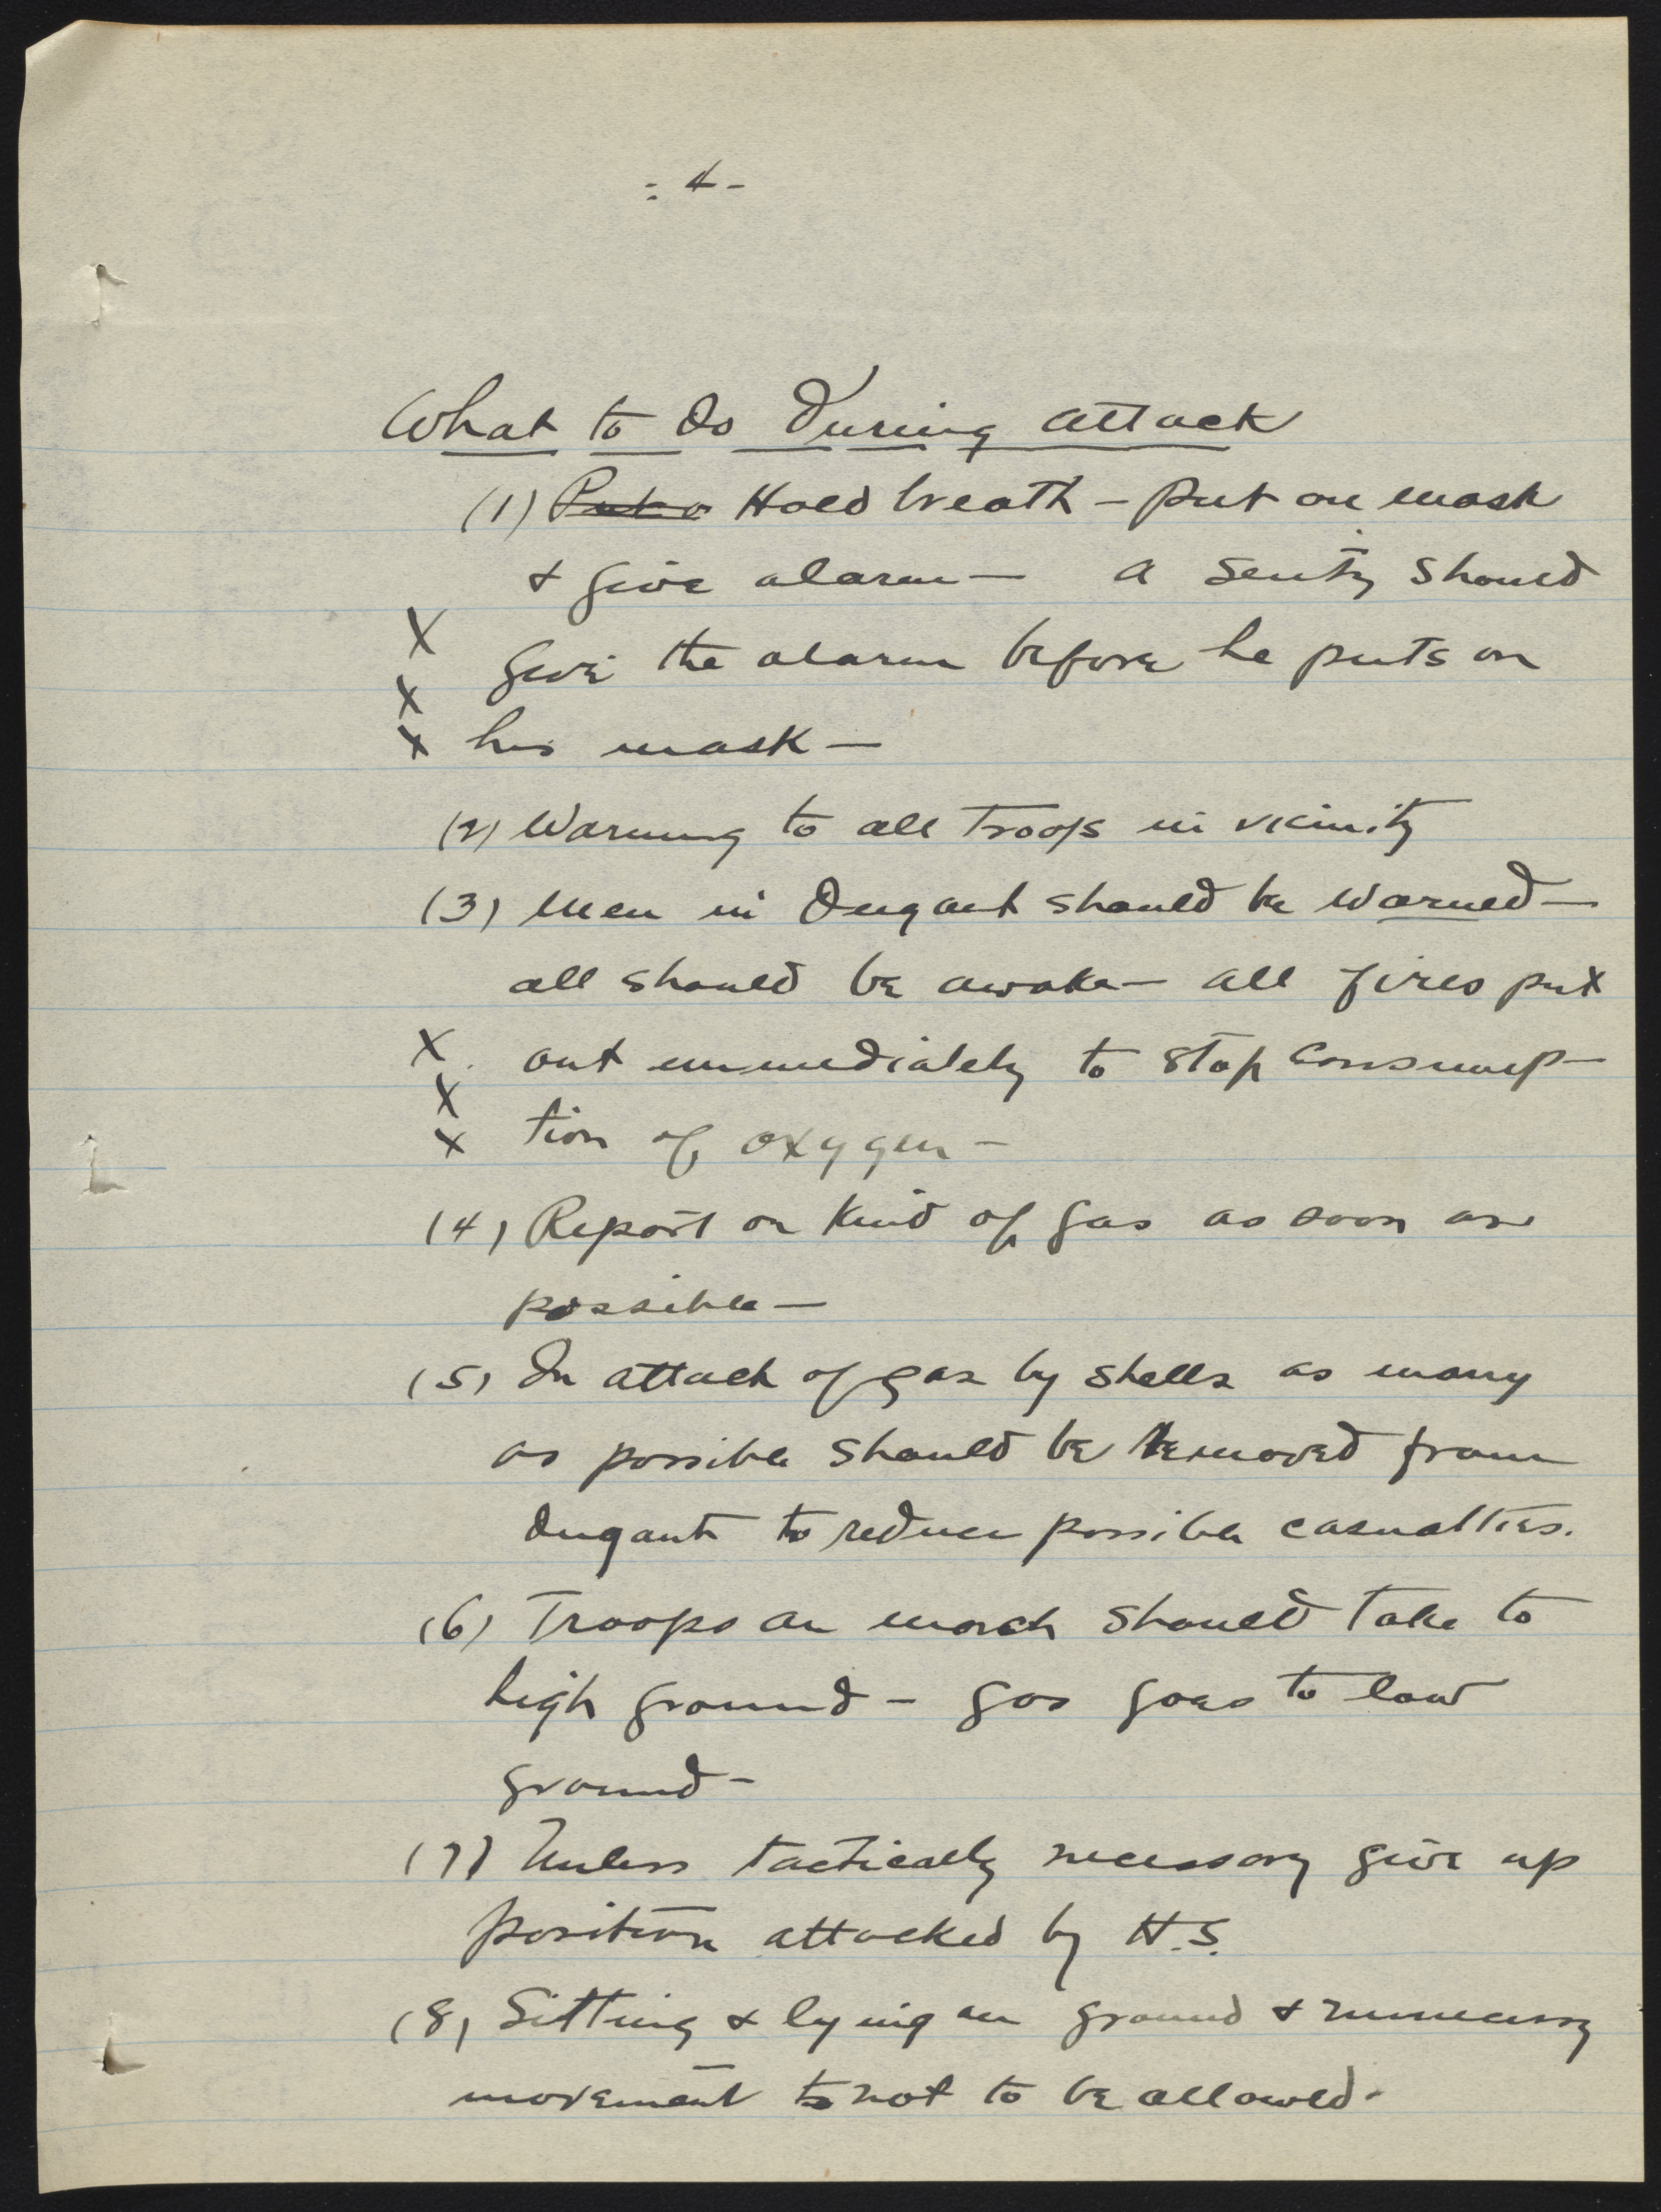 - 4 -
What to do during attack
(1) Put o Hold breath - put on mask
& give alarm - a sentry should
X
give the alarm before he puts on
X
X his mask -
(2) Warning to all troops in vicinity
(3) Men in dugout should be warned -
all should be awake - all fires put
X out immediately to stop consump-
X
X tion of oxygen -
(4) Report on kind of gas as soon as
possible -
(5) In attack of gas by shells as many
as possible should be removed from
dugouts to reduce possible casualties.
(6) Troops on march should take to
high ground - gas goes to low
ground -
(7) Unless tactically necessary give up
position attacked by H.S.
(8) Sitting & lying on ground & unnecessary
movement to not to be allowed -